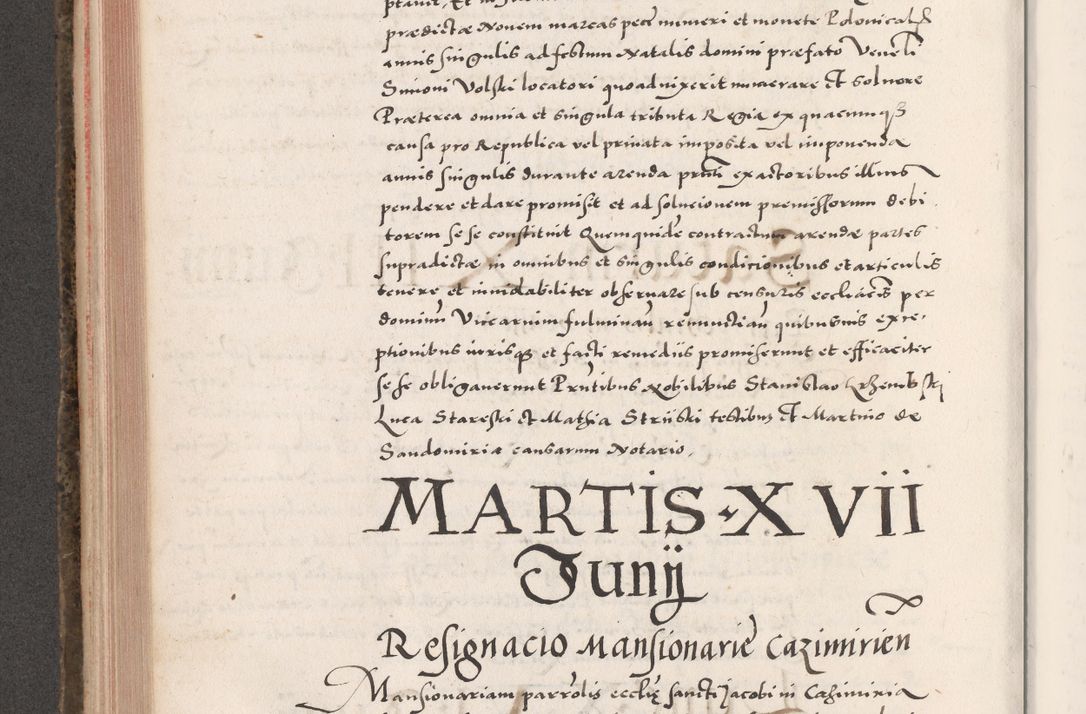 prædictæ Novem marcas pecu numeri et monete Polonical
annis singulis ad festum Natalis domini præfato Veneli
Simoni Volski locatori quoad vixerit numerare et solvere
Præterea omnia et singula tributa Regia ex quacumqz
causa pro Republica vel privata imposita vel imponenda
annis singulis durante arenda prnti exactoribus illius
pendere et dare promisit et ad solucionem premissorum debi
torem se se constituit Quemquide contractum arendæ partes
supradictæ in omnibus et singulis condicionibus et articulis
tenere et inviolabiliter observare sub censuris eccliacis per
dominu Vicarium fulminan renunctian quibusvis exce
ptionibus iurisqz et facti remediis promiserunt et efficaciter
se se obligaverunt Prntibus Nobilibus Stanislao Krzembski
Luca Stareski et Mathia Striiski testibus et Martino de
Sandomiria causarum Notario.
MARTIS XVII
Junij
Resignacio Mansionarie Cazimirien
Mansionariam parrolis ecclie sancti Jacobi in Cazimiria